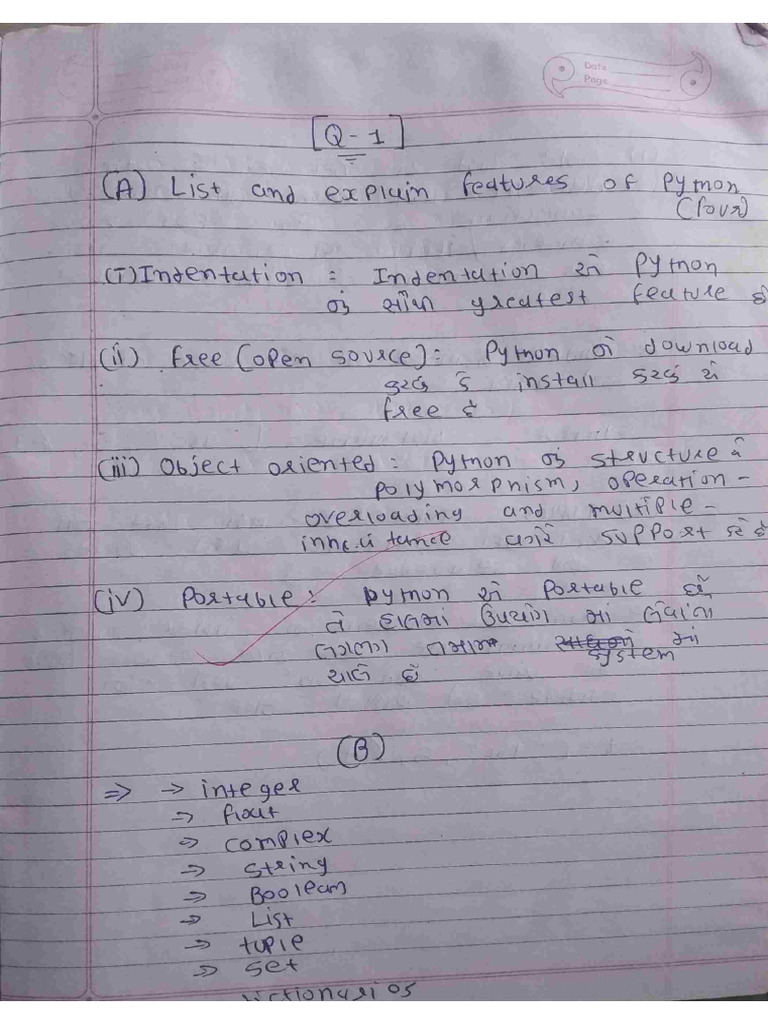 Date
Page
[Q-1]
(A) List and explain features of Python
(four)
(i) Indentation : Indentation એ Python
નું સૌથી greatest feature છે
(ii) free (open source) : Python ને download
કરવું કે install કરવું એ
free છે
(iii) Object oriented : Python નું structure એ
polymorphism, operation-
overloading and multiple-
inheritance વગેરે support કરે છે
(iv) Portable : python એ Portable છે
તે હાલમાં ઉપયોગ માં લેવાતા
લગભગ તમામ system માં
ચાલે છે
(B)
⇒ → integer
→ float
→ complex
→ string
→ Boolean
→ List
→ tuple
→ set
dictionaries